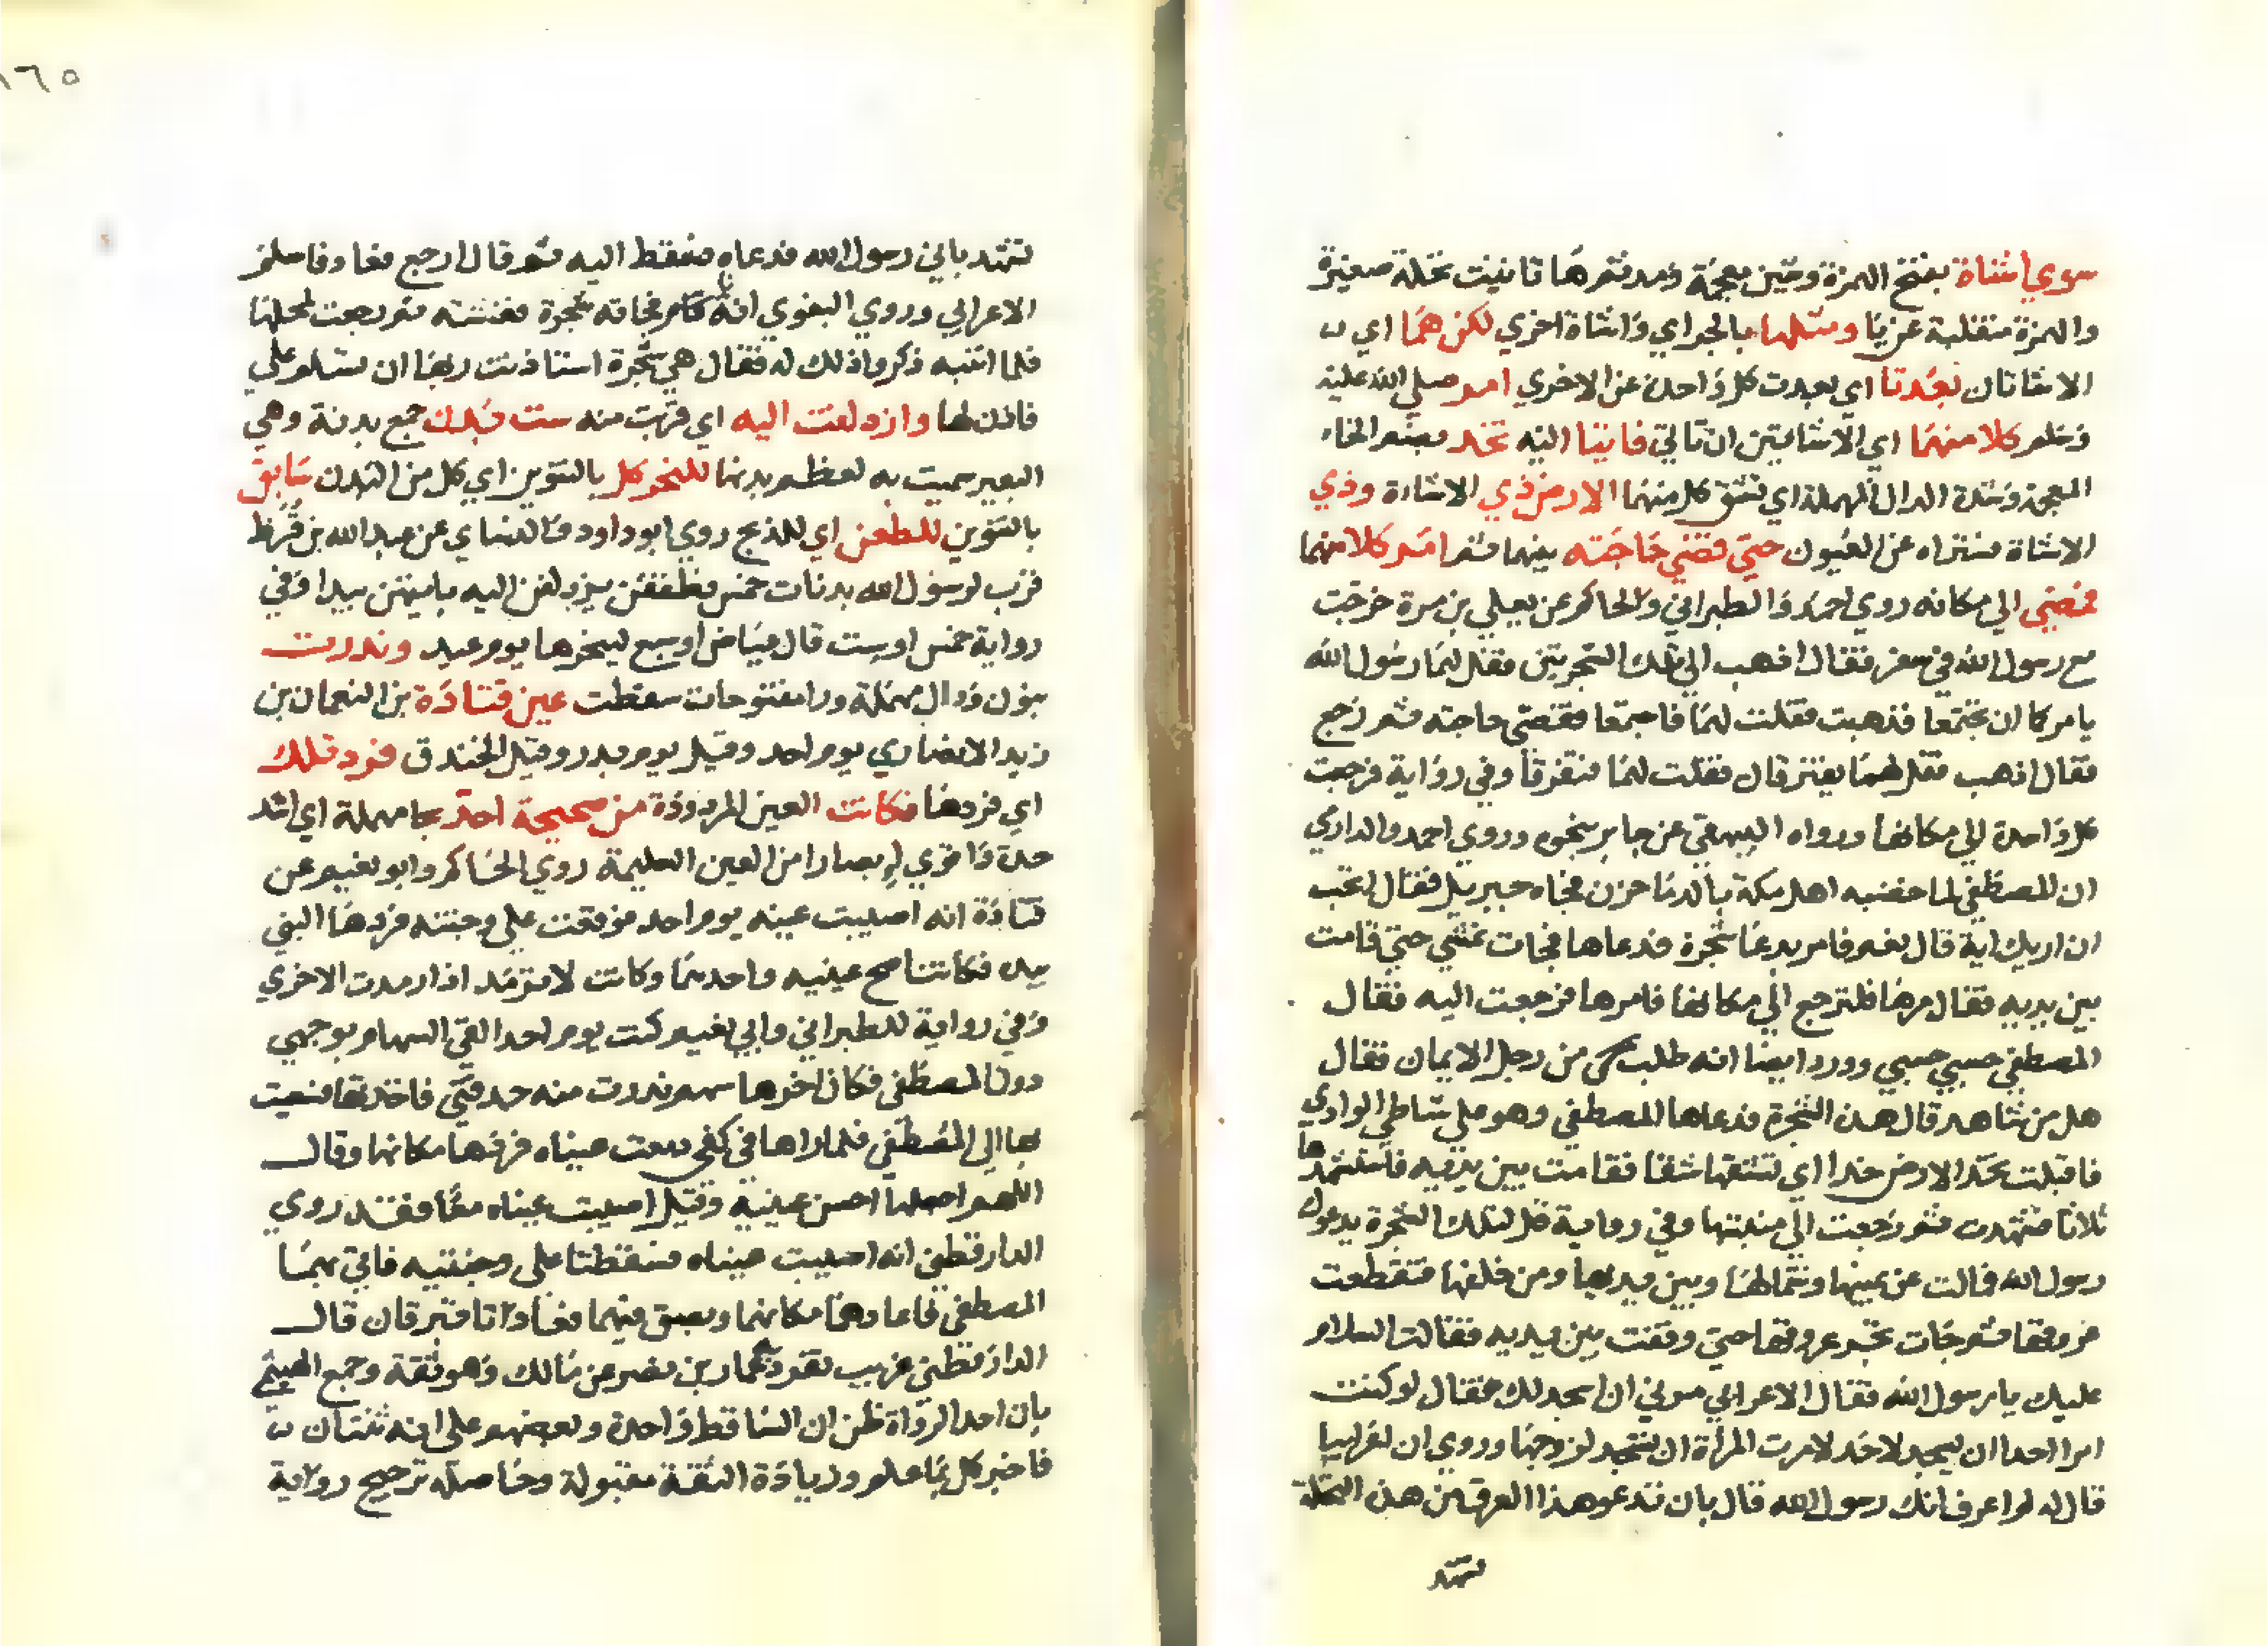 سوي اشاة بفتح الهمزة وشين معجمة ومد فتمرها تانيث نخلة صغيرة
والهمزة منقلبة عن يا ومثلها بالجر اي واشاة اخري لكن هما اي
الاشاتان بعدتا اي بعدت كل واحدة عن الاخري امر صلي الله عليه
وسلم كلا منهما اي الاشايتين ان تاتي فاتيتا اليه تخد بضم الخاء
المعجمة وشدة الدال المهملة اي تشق كل منهما الارض ذي الاشاءة وذي
الاشاة ستراه عن العيون حتي قضي حاجته بينهما ثم امر كلا منهما
فمضي الي مكانه روي احمد والطبراني والحاكم عن يعلي بن مرة خرجت
مع رسول الله في سفر فقال اذهب الي تلك الشجرتين فقل لهما رسول الله
يامركما ان تجتمعا فذهبت فقلت لهما فاجتمعا فقضي حاجته ثم رجع
فقال اذهب فقل لهما يفترقان فقلت لهما فتفرقا وفي رواية فرجعت
كل واحدة الي مكانها ورواه البيهقي عن جابر بنحوه وروي احمد والدارمي
ان المصطفي لما خضبه اهل مكة بالدما حزن فجاه جبريل فقال اتحب
ان اريك اية قال نعم فامر بدعا شجرة فدعاها فجات تمشي حتي قامت
بين يديه فقال مرها فلترجع الي مكانها فامرها فرجعت اليه فقال
المصطفي حسبي حسبي وورد ايضا انه طلب من رجل الايمان فقال
هل من شاهد قال هذه الشجرة فدعاها المصطفي وهو علي شاطي الوادي
فاقبلت تخد الارض خدا اي تشقها شقا فقامت بين يديه فاستشهدها
ثلاثا فشهدت ثم رجعت الي منبتها وفي رواية قل لتلك الشجرة يدعوك
رسول الله فمالت عن يمينها وشمالها وبين يديها ومن خلفها فتقطعت
عروقها ثم جات تجر عروقها حتي وقفت بين يديه فقالت السلام
عليك يا رسول الله فقال الاعرابي مرني ان اسجد لك فقال لو كنت
امرا احدا ان يسجد لاحد لامرت المراة ان تسجد لزوجها وروي ان اعرابيا
قال له لم اعرف انك رسول الله قال بان تدعو هذا العرق من هذه النخلة
تشهد
١٦٥
تشهد باني رسول الله فدعاه فسقط اليه ثم قال ارجع فعاد فاسلم
الاعرابي وروي البغوي انه نام فجاته شجرة فغشته ثم رجعت لمحلها
فلما انتبه ذكروا ذلك له فقال هي شجرة استاذنت ربها ان تسلم علي
فاذن لها وازدلفت اليه اي قربت منه ست بدن جمع بدنة وهي
البعير سميت به لعظم بدنها للنحر كل بالتنوين اي كل من البدن سابق
بالتنوين للطعن اي للذبح روي ابو داود والنساي عن عبد الله بن قرظ
قرب لرسول الله بدنات خمس فطفقن يزدلفن اليه بايتهن يبدا وفي
رواية خمس او ست قال عياض او سبع لينحرها يوم عيد وندرت
بنون ودال مهملة ورا مفتوحات سقطت عين قتادة بن النعمان بن
زيد الانصاري يوم احد وقيل يوم بدر وقيل الخندق فرد تلك
اي فردها فكانت العين المردودة من صحيحة احد بحا مهملة اي اشد
حدة واقوي ابصارا من العين السليمة روي الحاكم وابو نعيم عن
قتادة انه اصيبت عينه يوم احد فوقعت علي وجنته فردها النبي
بيده فكانت اصح عينيه واحدهما وكانت لا ترمد اذا رمدت الاخري
وفي رواية للطبراني وابي نعيم كنت يوم احد اتقي السهام بوجهي
دون المصطفي فكان اخرها سهم ندرت منه حدقتي فاخذتها فسعيت
بها الي المصطفي فلما راها في كفي دمعت عيناه فردها مكانها وقال
اللهم اجعلها احسن عينيه وقيل اصيبت عيناه معا فقد روي
الدارقطني انه اصيبت عيناه فسقطتا علي وجنتيه فاتي بهما
المصطفي فاعادها مكانهما وبصق فيهما فعادتا تبرقان قال
الدارقطني غريب تفرد به عمار بن نصر عن مالك وهو ثقة وجمع الهيثمي
بان احد الرواة ظن ان الساقط واحدة وبعضهم علي انه ثنتان
فاخبر كل بما علم وزيادة الثقة مقبولة وحاصله ترجيح رواية